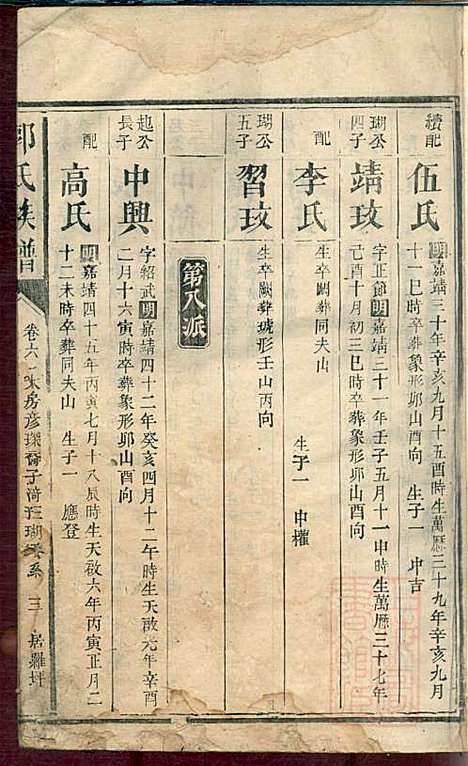 續配
伍氏
明嘉靖三十年辛亥九月十五酉時生萬歷三十九年辛亥九月
十一巳時卒葬象形卯山酉向 生子一 中吉
瑚公四子
靖玟
字正節明嘉靖三十一年壬子五月十一申時生萬歷三十七年
己酉十月初三巳時卒葬象形卯山酉向
配
李氏
生卒闕葬同夫山
生子一 中權
瑚公五子
習玟
生卒闕葬琥形壬山丙向
第八派
起公長子
中興
字紹武明嘉靖四十二年癸亥四月十二午時生天啟元年辛酉
二月十六寅時卒葬象形卯山酉向
配
高氏
明嘉靖四十五年丙寅七月十八辰時生天啟六年丙寅正月二
十二未時卒葬同夫山 生子一 應登
郭氏族譜
卷六 大房彥琛裔子漪玨瑚系 三 居羅坪